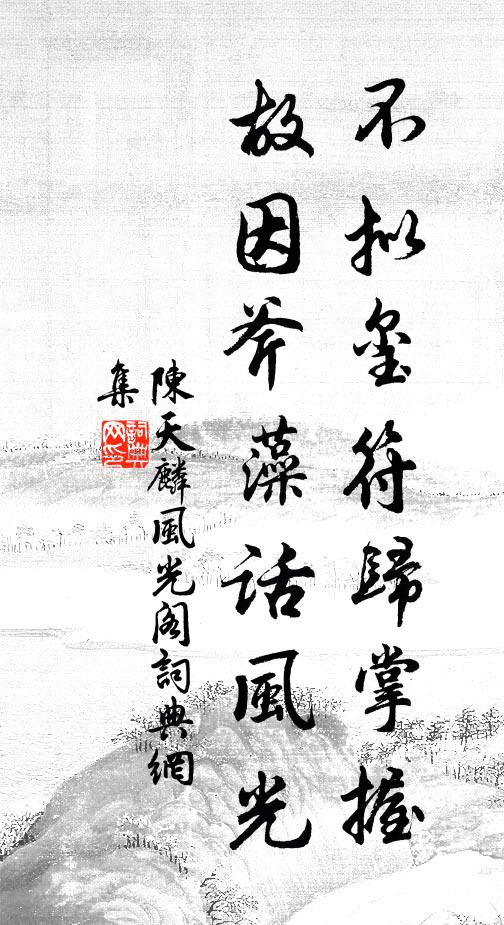 不拟玺符歸掌握
故因斧藻話風光
陳天麟風光阁詞典網
集